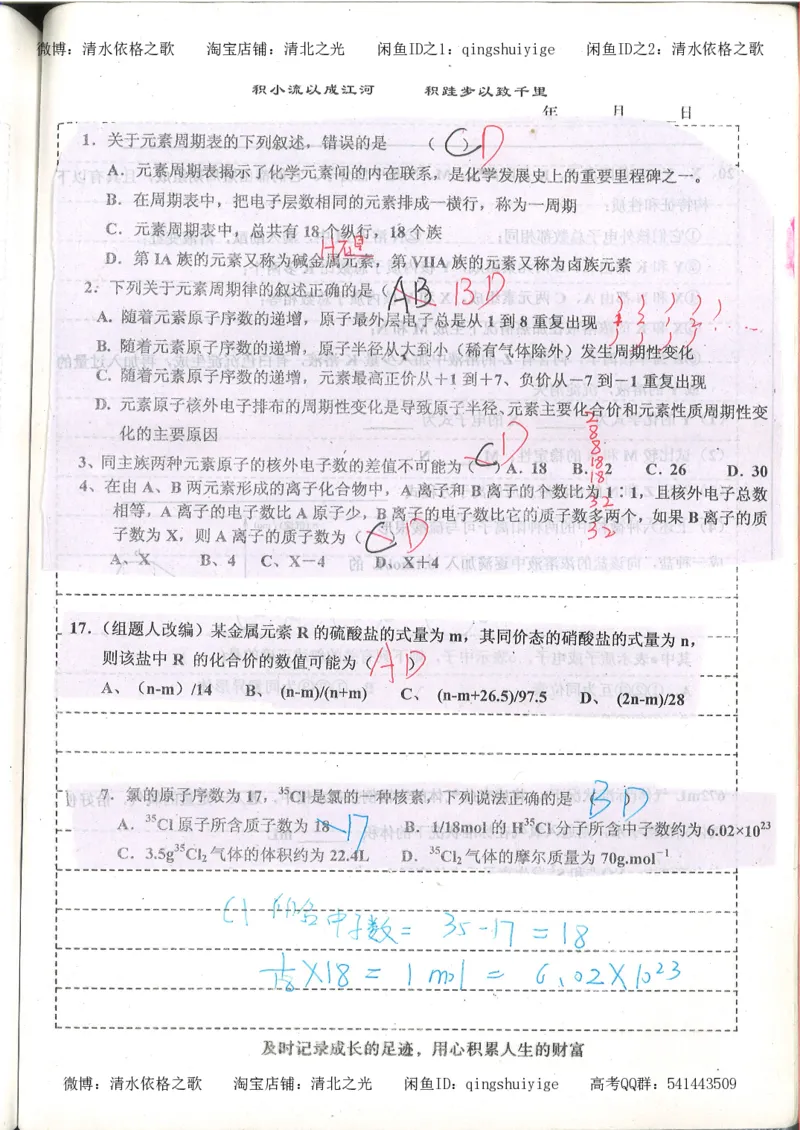 微博：清水依格之歌 淘宝店铺：清北之光 闲鱼ID之1：qingshuiyige 闲鱼ID之2：清水依格之歌
积小流以成江河 积跬步以致千里
年 月 日
1．关于元素周期表的下列叙述，错误的是 （ C ）D
A．元素周期表揭示了化学元素间的内在联系，是化学发展史上的重要里程碑之一。
B．在周期表中，把电子层数相同的元素排成一横行，称为一周期
C．元素周期表中，总共有 18 个纵行，18 个族
D．第 IA 族的元素又称为碱金属元素，第 VIIA 族的元素又称为卤族元素
2．下列关于元素周期律的叙述正确的是（ AB BD
A. 随着元素原子序数的递增，原子最外层电子总是从 1 到 8 重复出现
B. 随着元素原子序数的递增，原子半径从大到小（稀有气体除外）发生周期性变化
C. 随着元素原子序数的递增，元素最高正价从＋1 到＋7、负价从－7 到－1 重复出现
D. 元素原子核外电子排布的周期性变化是导致原子半径、元素主要化合价和元素性质周期性变
化的主要原因
2
8
8
18
18
32
32
3、同主族两种元素原子的核外电子数的差值不可能为（ C ）D A．18 B．12 C. 26 D. 30
4、在由 A、B 两元素形成的离子化合物中，A 离子和 B 离子的个数比为 1∶1，且核外电子总数
相等，A 离子的电子数比 A 原子少，B 离子的电子数比它的质子数多两个，如果 B 离子的质
子数为 X，则 A 离子的质子数为（ C D
A、X B、4 C、X－4 D、X＋4
17.（组题人改编）某金属元素 R 的硫酸盐的式量为 m，其同价态的硝酸盐的式量为 n，
则该盐中 R 的化合价的数值可能为（ A ）D
A、（n-m）/14 B、 (n-m)/(n+m) C、 (n-m+26.5)/97.5 D、 (2n-m)/28
7．氯的原子序数为 17，³⁵Cl 是氯的一种核素，下列说法正确的是 （ BD ）
A．³⁵Cl 原子所含质子数为 18 17 B．1/18mol 的 H³⁵Cl 分子所含中子数约为 6.02×10²³
C．3.5g³⁵Cl₂ 气体的体积约为 22.4L D．³⁵Cl₂ 气体的摩尔质量为 70g.mol⁻¹
Cl 的含中子数 = 35-17 = 18
1/18 × 18 = 1 mol = 6.02×10²³
及时记录成长的足迹，用心积累人生的财富
微博：清水依格之歌 淘宝店铺：清北之光 闲鱼ID：qingshuiyige 高考QQ群：541443509